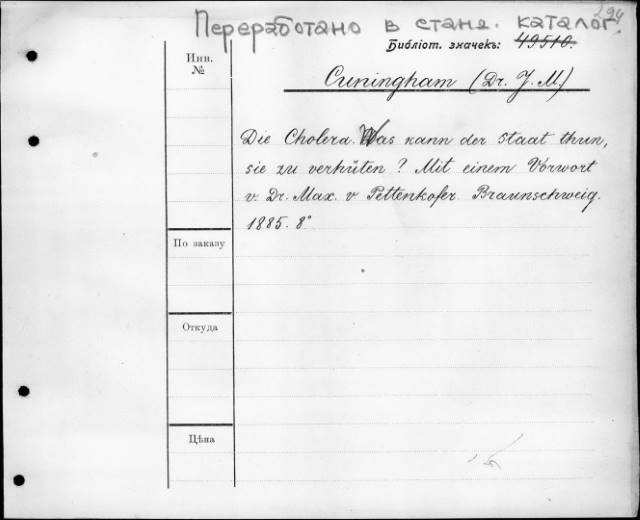 294
Переработано в станд. каталог.
Библіот. значекъ: 49510.
Инв.
№
Cuningham (Dr. J. M)
Die Cholera. Was kann der Staat thun,
sie zu verhüten? Mit einem Vorwort
v. Dr. Max. v Pettenkofer. Braunschweig.
1885. 8°
По заказу
Откуда
Цѣна